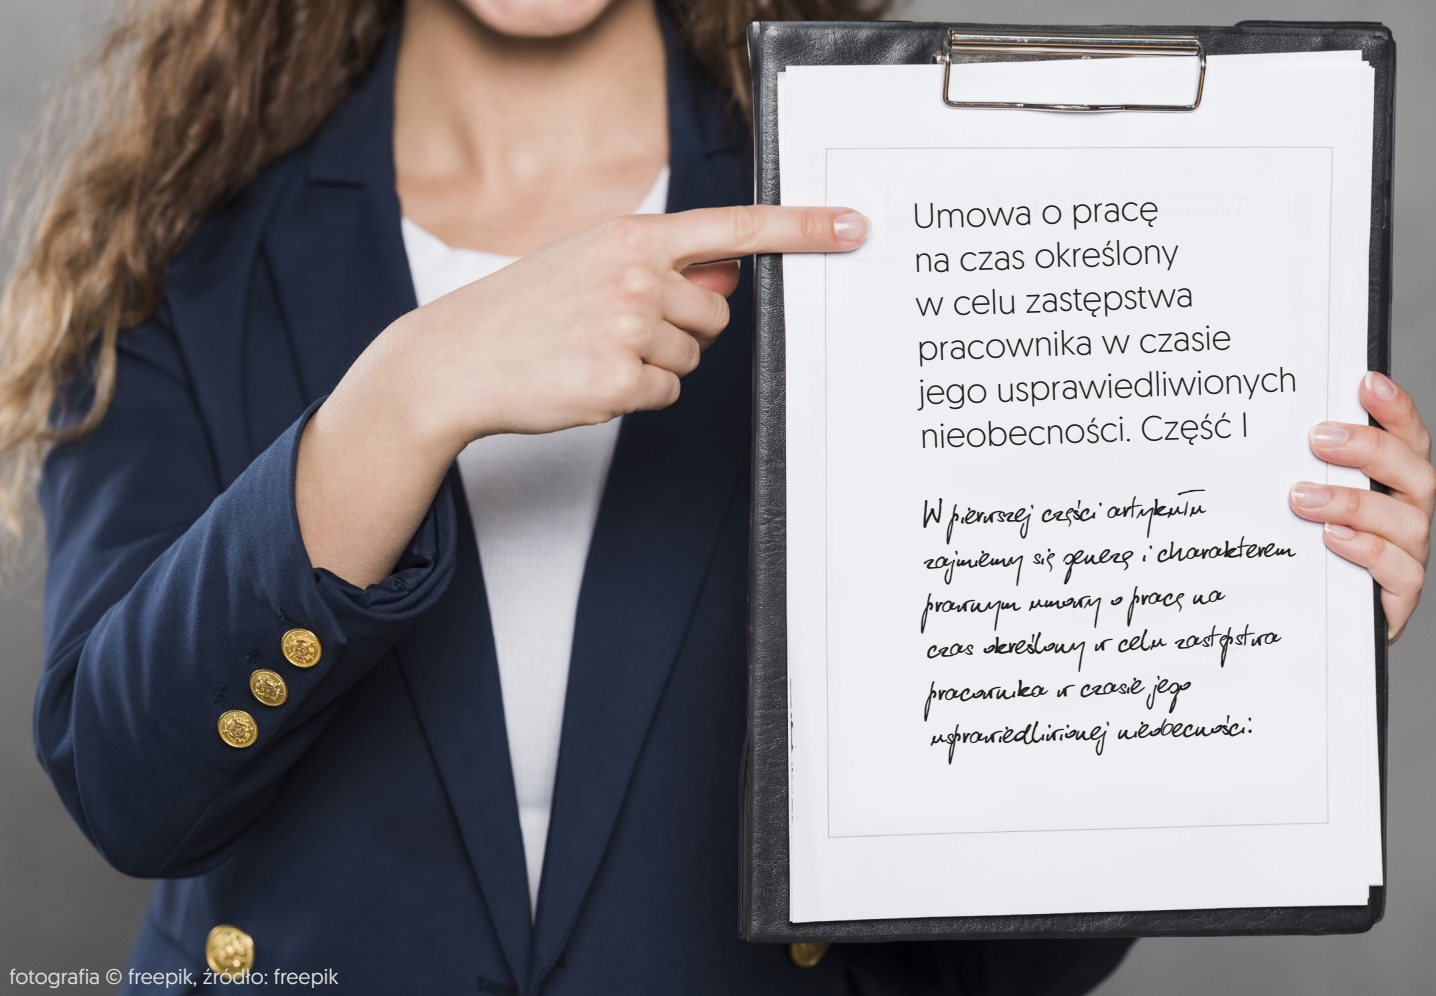 Umowa o pracę
na czas określony
w celu zastępstwa
pracownika w czasie
jego usprawiedliwionych
nieobecności. Część I
W pierwszej części artykułu
zajmiemy się genezą i charakterem
prawnym umowy o pracę na
czas określony w celu zastępstwa
pracownika w czasie jego
usprawiedliwionej nieobecności.
fotografia © freepik, źródło: freepik